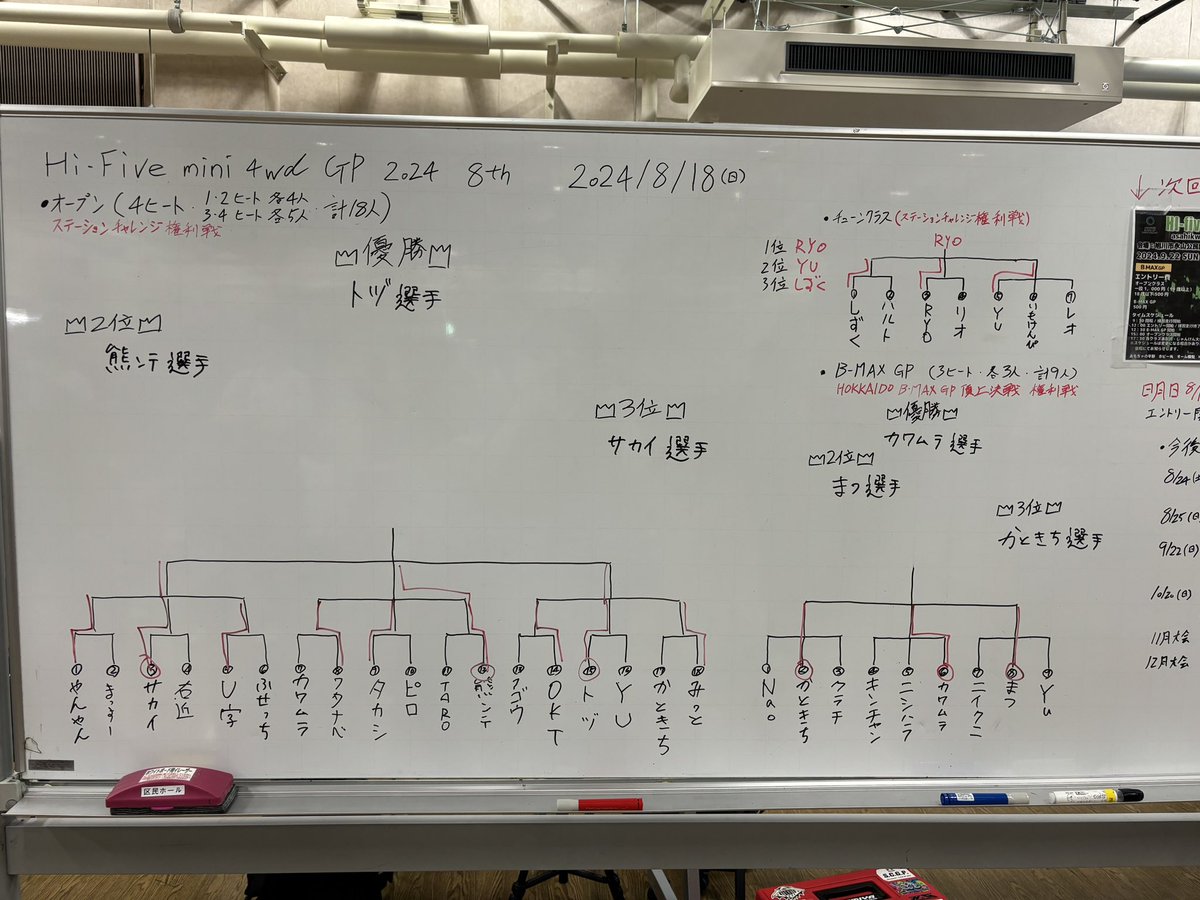 Hi-Five mini 4wd GP 2024 8th 2024/8/18(日)
•オープン(4ヒート・1・2ヒート各4人 3・4ヒート各5人・計18人)
ステーションチャレンジ権利戦
優勝
トヅ選手
2位
熊ンテ選手
3位
サカイ選手
①やんやん
②まっすー
③サカイ
④右近
⑤U字
⑥ふせっち
⑦カワムラ
⑧ワタナベ
⑨タカシ
⑩ピロ
⑪TARO
⑫熊ンテ
⑭OKT
⑮トヅ
⑯YU
⑰かときち
⑱みっと
•チューンクラス(ステーションチャレンジ権利戦)
1位 RYO
2位 YU
3位 しずく
RYO
①しずく
②ハルト
③RYO
④リオ
⑤YU
⑥いもけんぴ
⑦レオ
•B-MAX GP (3ヒート・各3人・計9人)
HOKKAIDO B-MAX GP 頂上決戦 権利戦
優勝
カワムラ選手
2位
まつ選手
3位
かときち選手
①Nao
②かときち
③クラチ
④キンチャン
⑤ニシハラ
⑥カワムラ
⑦ニイクニ
⑧まつ
⑨Yu
↓次回
Hi-fiv
asahikw
2024.9.22 SUN
B-MAXGP
エントリー費
オープンクラス
B-MAX GP
500円
タイムスケジュール
日月日 8/
エントリー
•今後
8/24(土
8/25(日)
9/22(日)
10/20(日)
11月大会
12月大会
区民ホール
S.C.G.P.